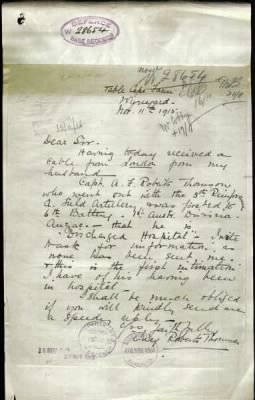 DEFENCE
28654
BASE RECORDS
28654
Table Cape Farm
Wynyard
Nov. 11th 1915
Dear Sir.
Having today received a
cable from London from my
husband
Capt. A. F. Roberts Thomson
who went out with the 5th Reinfor
A. Field Artillery was posted to
6th Battery. 1st Austr. Division
that he is
"Discharged Hospital" I write
to ask for information as
none has been sent me
& this is the first intimation
I have of his having been
in hospital
I shall be much obliged
if you will kindly send me
a speedy reply
Yrs faithfully
Roberts Thomson